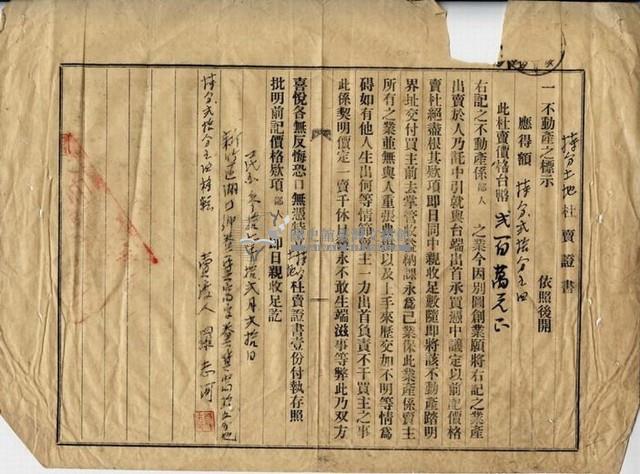 持分土地杜賣證書
一不動產之標示 依照後開
應得額 持分弍拾分之四
此杜賣價格台幣弍百萬元正
右記之不動產係鄙人之業今因別圖創業願將右記之業產
出賣於人乃託中引就與台端出首承買憑中議定以前記價格
賣杜絕盡根其欵項即日同中親收足數隨即將該不動產踏明
界址交付買主前去掌管收益納課永為己業保此業產係賣主
所有之業並無與人重張典掛以及上手來歷交加不明等情為
碍如有他人生出何等情弊賣主一力出首負責不干買主之事
此係契明價定一賣千休日後永不敢生端滋事等弊此乃双方
喜悅各無反悔恐口無憑特立持分土地杜賣證書壹份付執存照
批明前記價格欵項鄙人即日親收足訖
民國參拾年拾弍月弍拾日
新竹區湖口鄉
持分弍拾分之四
賣渡人 羅志河